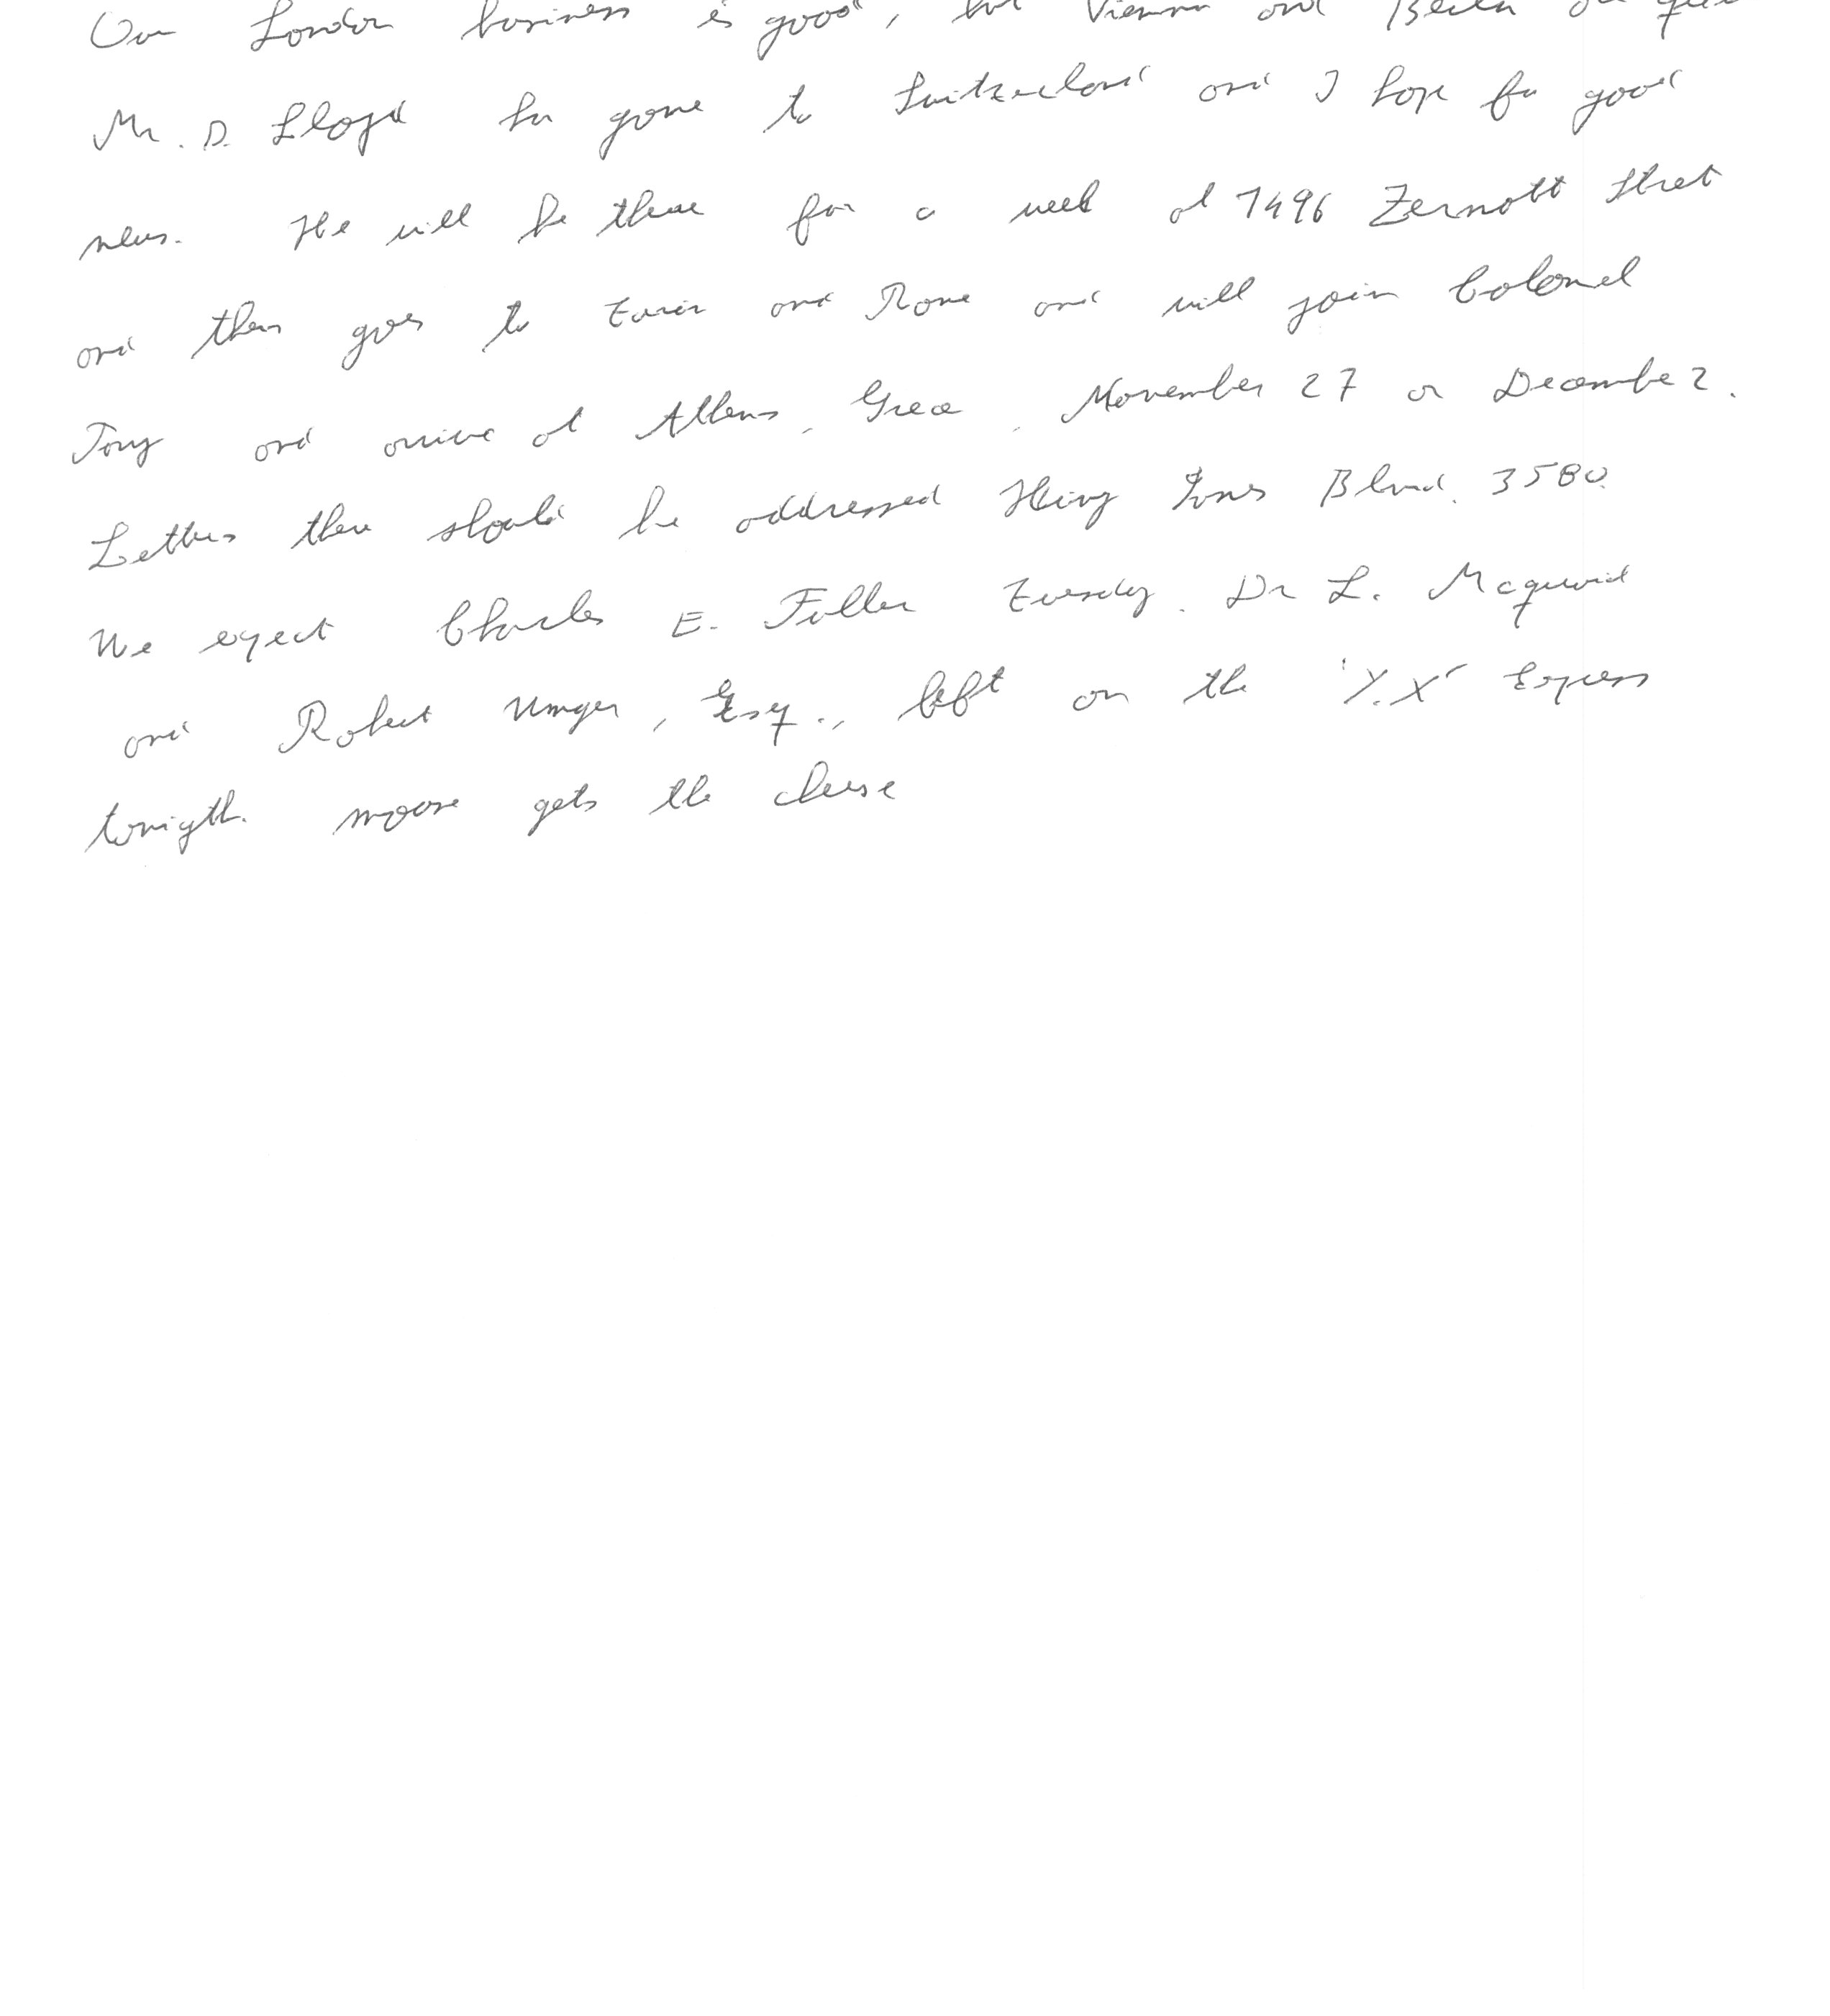 Our London business is good, but Vienna and Berlin are quiet
Mr. D. Lloyd has gone to Switzerland and I hope for good
news. He will be there for a week at 7496 Zermott Street
and then goes to Turin and Rome and will join Colonel
Tory and arrive at Athens, Greece, November 27 or December 2.
Letters there should be addressed King James Blvd. 3580.
We expect Charles E. Fuller Tuesday. Dr L. Mcquaid
and Robert Unger, Esq., left on the "Y.X" Express
tonigth. moose gets the cheese